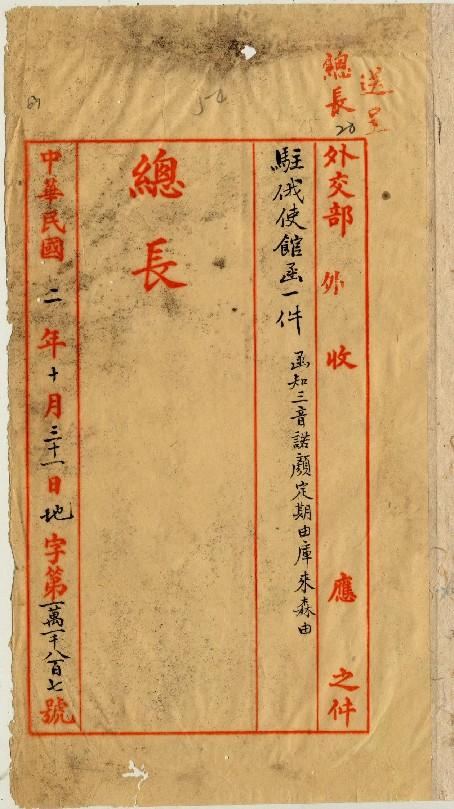 送呈
總長
20
外交部 外 收 應 之件
駐俄使館函一件 函知三音諾顏定期由庫來森由
總長
中華民國 二 年 十 月 三十一 日 地 字第 一萬一千八百七 號
50